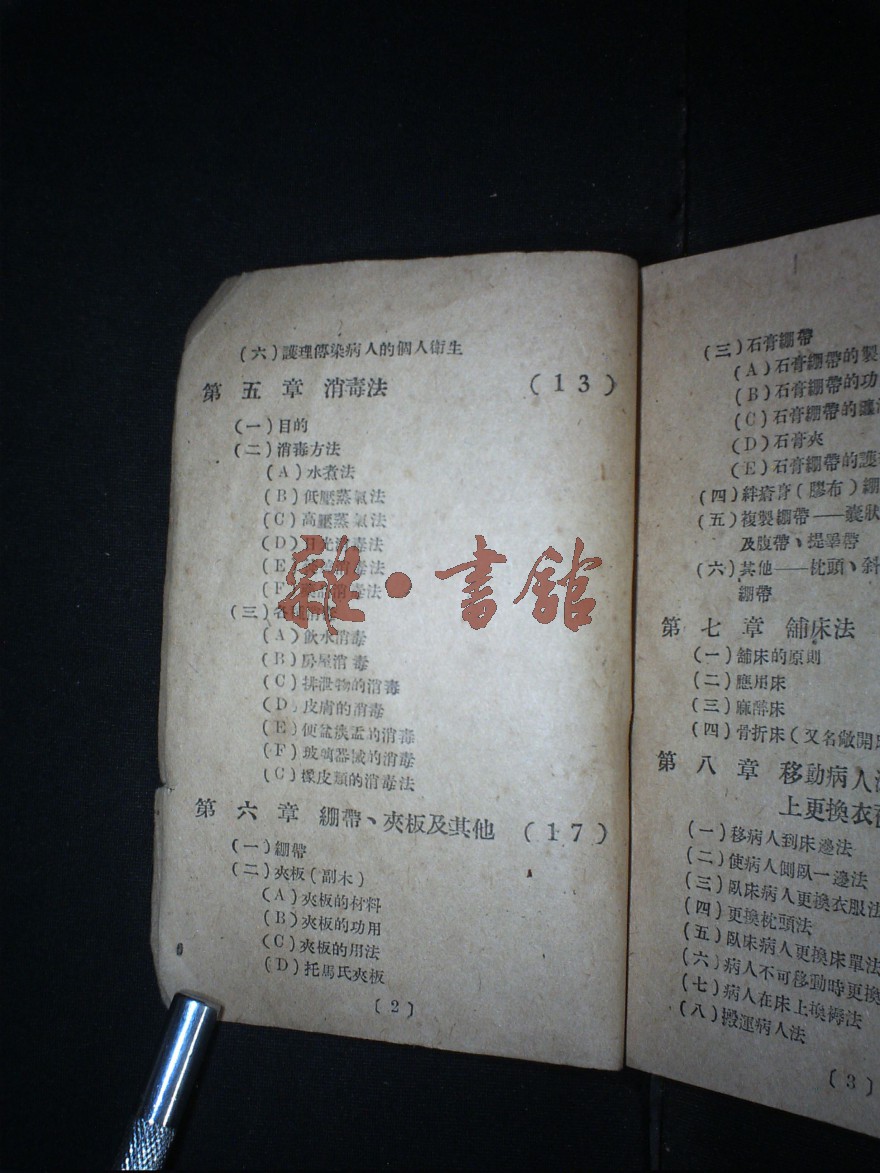 (六)護理傳染病人的個人衛生
第五章 消毒法 (13)
(一)目的
(二)消毒方法
(A)水煮法
(B)低壓蒸氣法
(C)高壓蒸氣法
(D)日光消毒法
(E 消毒法
(F 消毒法
(三)各 消
(A)飲水消毒
(B)房屋消毒
(C)排泄物的消毒
(D)皮膚的消毒
(E)便盆痰盂的消毒
(F)玻璃器械的消毒
(C)橡皮類的消毒法
第六章 綳帶、夾板及其他 (17)
(一)綳帶
(二)夾板(副木)
(A)夾板的材料
(B)夾板的功用
(C)夾板的用法
(D)托馬氏夾板
〔2〕
雜·書館
(三)石膏綳帶
(A)石膏綳帶的製
(B)石膏綳帶的功
(C)石膏綳帶的
(D)石膏夾
(E)石膏綳帶的護
(四)絆瘡膏(膠布)綳
(五)複製綳帶——囊狀
及腹帶、提睪帶
(六)其他——枕頭、斜
綳帶
第七章 舖床法
(一)舖床的原則
(二)應用床
(三)麻醉床
(四)骨折床(又名敞開
第八章 移動病人
上更換衣
(一)移病人到床邊法
(二)使病人側臥一邊法
(三)臥床病人更換衣服法
(四)更換枕頭法
(五)臥床病人更換床單法
(六)病人不可移動時更換
(七)病人在床上換褥法
(八)搬運病人法
〔3〕